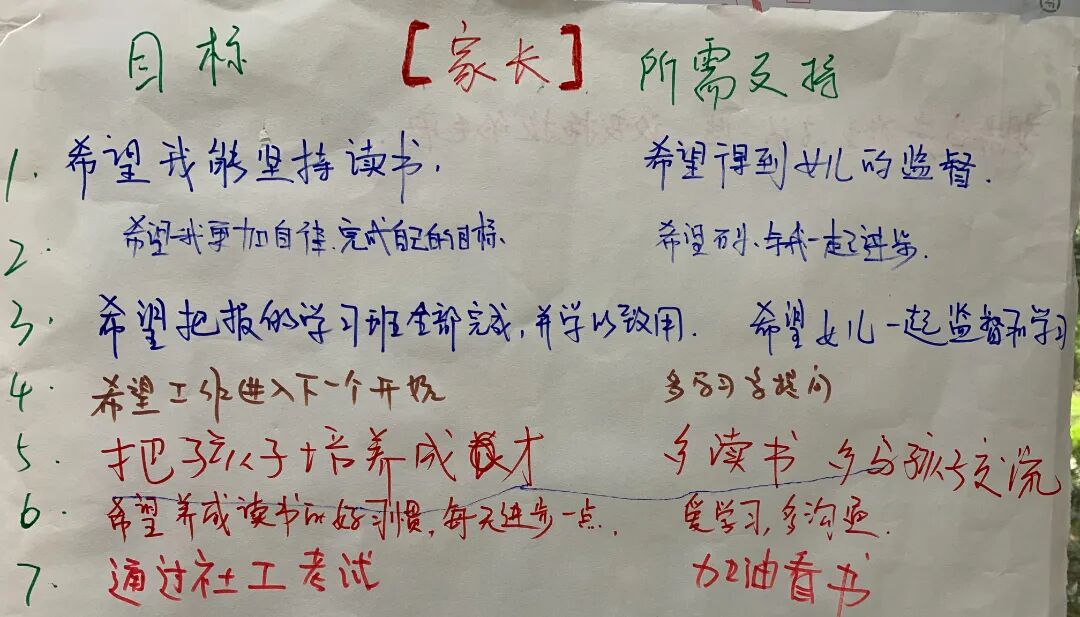 目标 [家长] 所需支持
1. 希望我能坚持读书. 希望得到女儿的监督.
2. 希望我更加自律.完成自己的目标. 希望 与我一起进步.
3. 希望把报的学习班全部完成,并学以致用. 希望女儿一起监督和学习
4. 希望工作进入下一个开 多学习多提问
5. 把孩子培养成 才 多读书 多与孩子交流
6. 希望养成读书的好习惯,每天进步一点. 爱学习,多沟通.
7. 通过社工考试 加油看书